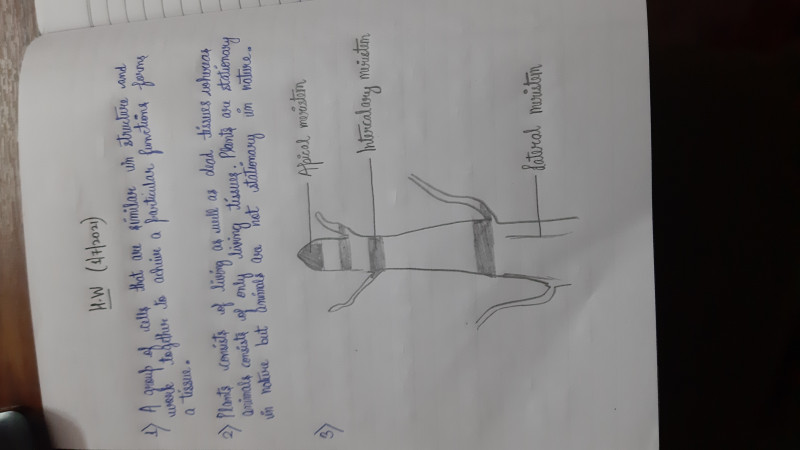 H.W (4/7/2021)
1) A group of cells that are similar in structure and
work together to achive a particular functions forms
a tissue.
2) Plants consists of living as well as dead tissues whereas
animals consists of only living tissues. Plants are stationary
in nature but animals are not stationary in nature.
3)
Apical meristem
Intercalary meristem
Lateral meristem